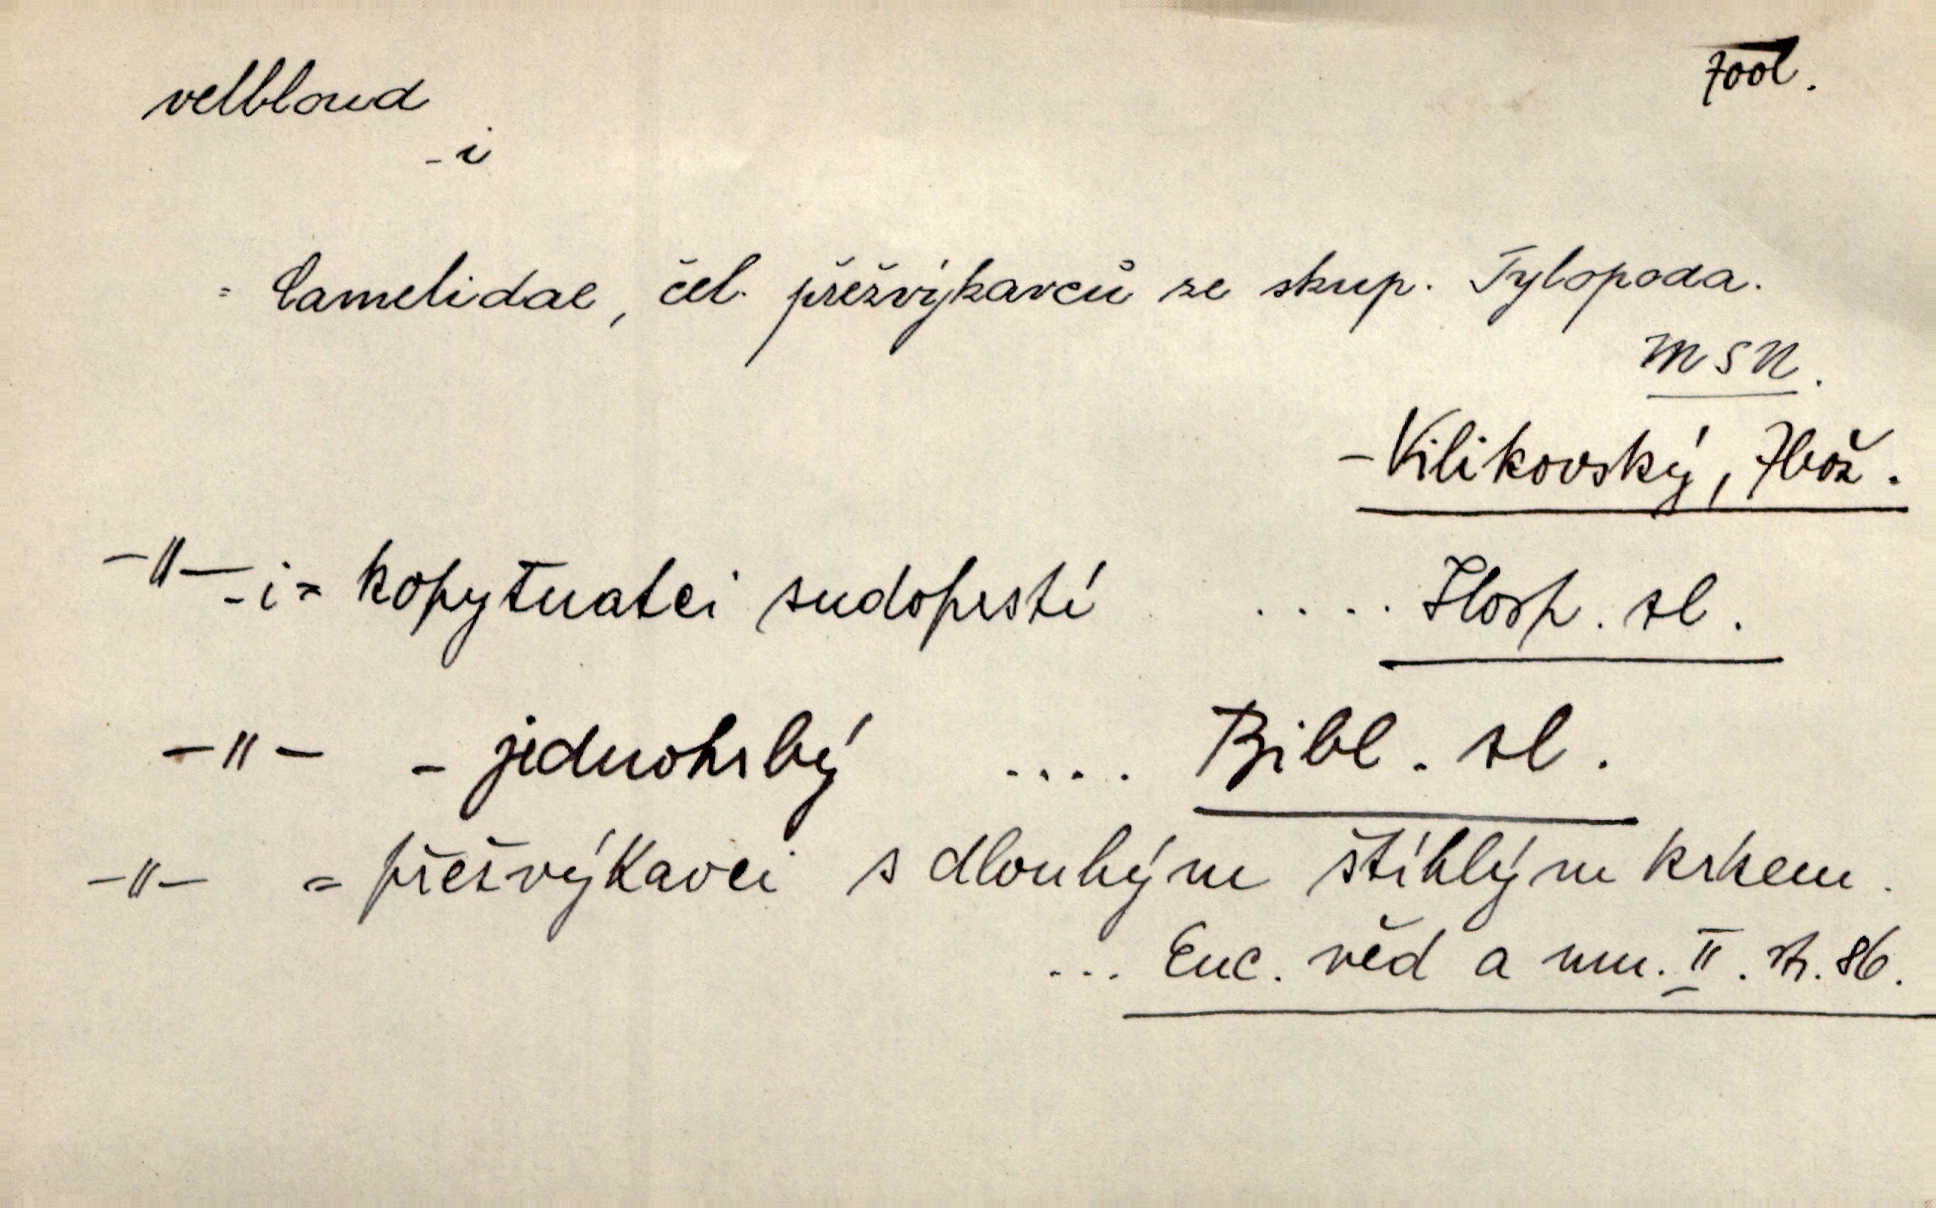 velbloud zool.
-i
= Camelidae, čel. přežvýkavců ze skup. Tylopoda.
MSN.
- Vilikovský, Zbož.
-"- -i = kopytnatci sudoprstí .... Hosp. sl.
-"- - jednohrbý .... Bibl. sl.
-"- = přežvýkavci s dlouhým štíhlým krkem.
... Enc. věd a um. II. st. 86.